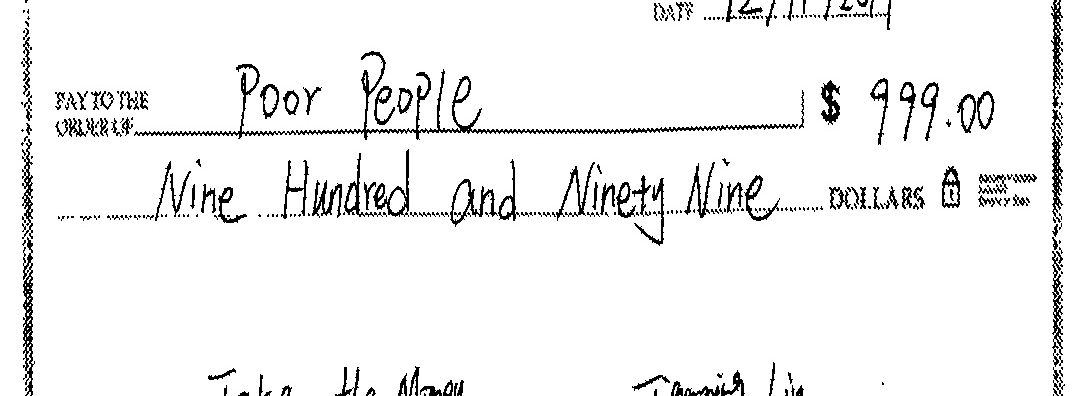 DATE
PAY TO THE
ORDER OF
Poor People $ 999.00
Nine Hundred and Ninety Nine DOLLARS
Take the Money